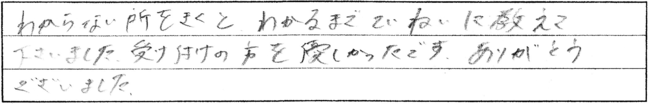 わからない所をきくと わかるまでていねいに教えて
下さいました。受け付けの方も優しかったです。ありがとう
ございました。